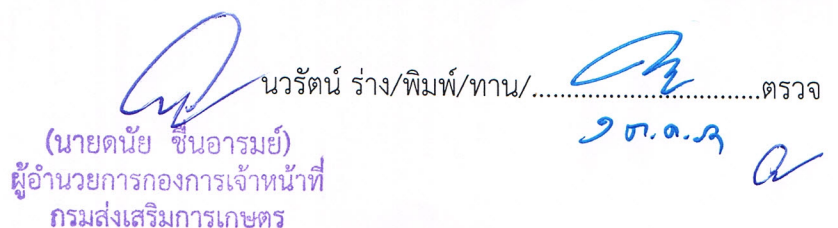 นวรัตน์ ร่าง/พิมพ์/ทาน/..............................ตรวจ
(นายดนัย ชื่นอารมย์)
ผู้อำนวยการกองการเจ้าหน้าที่
กรมส่งเสริมการเกษตร